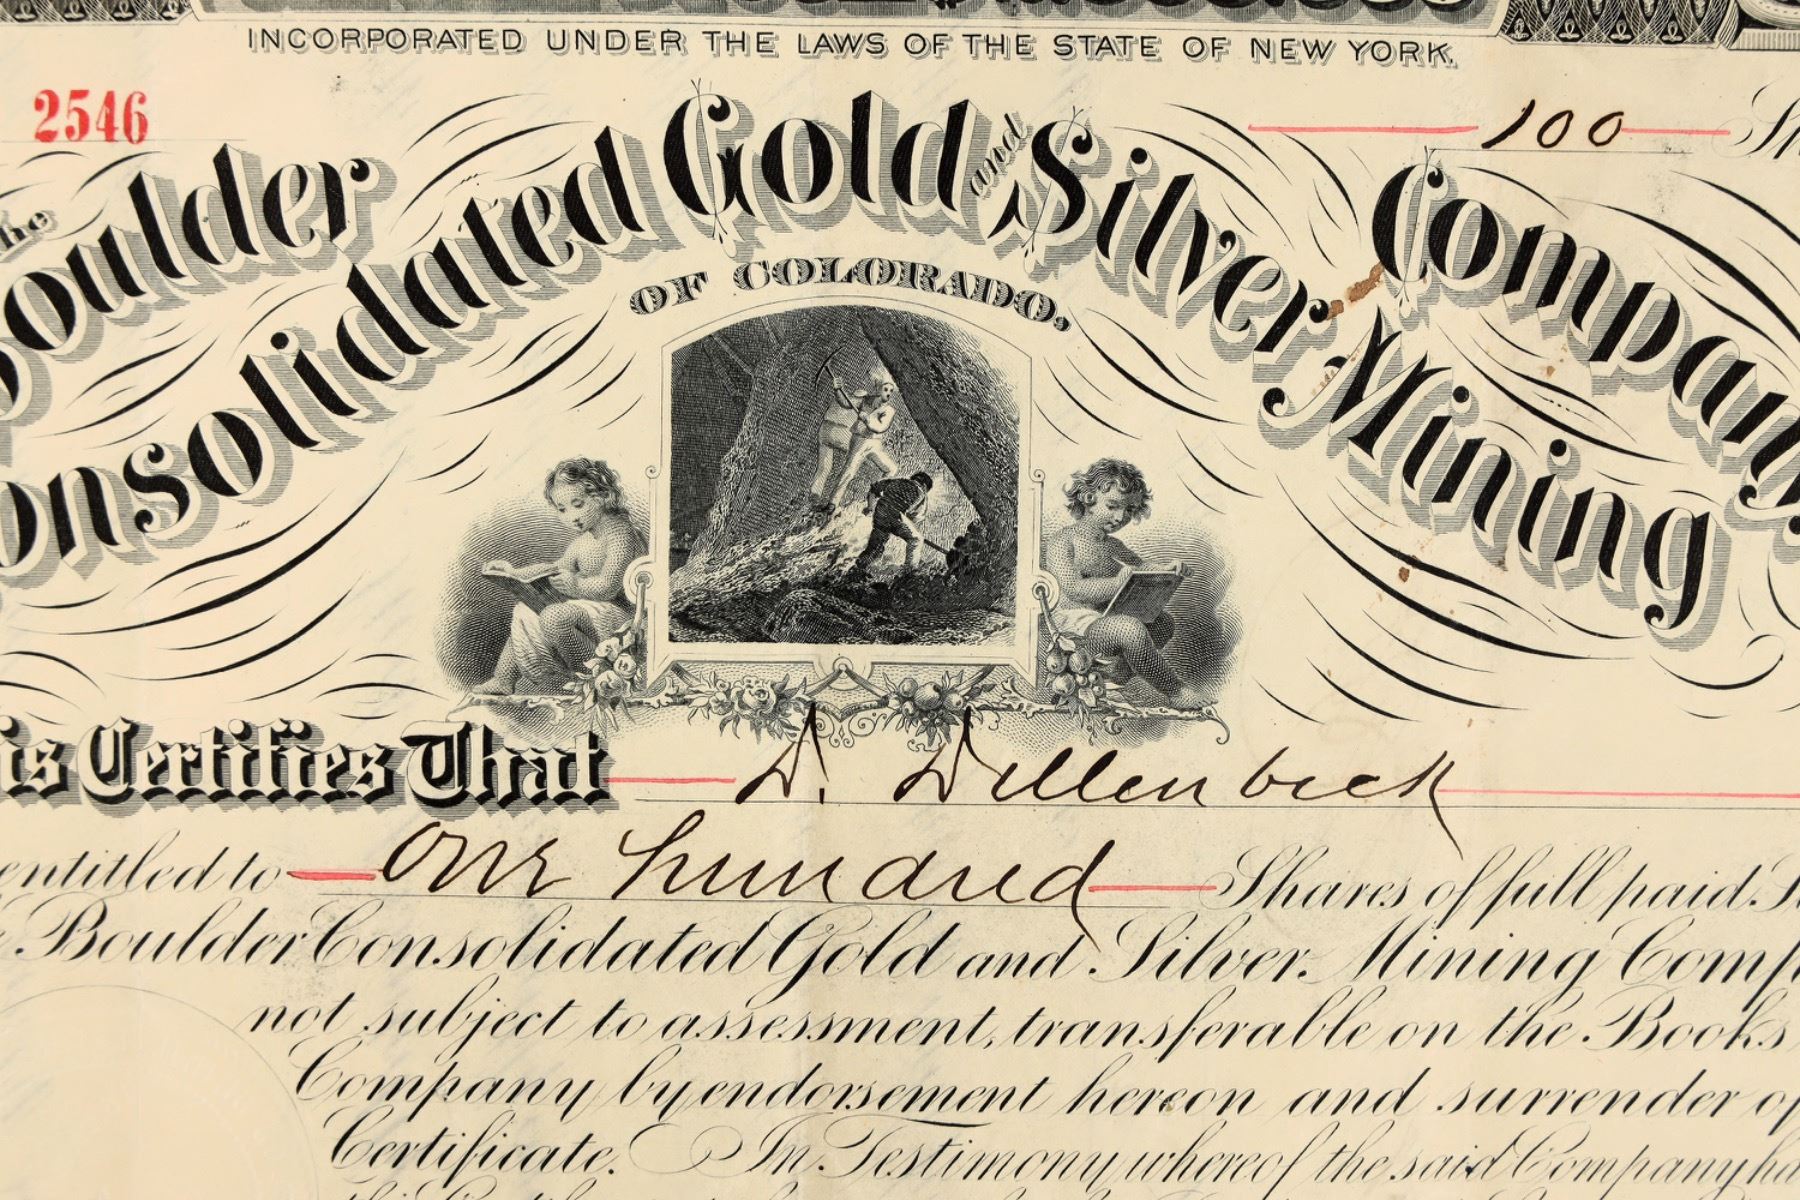 INCORPORATED UNDER THE LAWS OF THE STATE OF NEW YORK.
2546
100
The Boulder
Consolidated Gold and Silver Mining Company
OF COLORADO,
is Certifies That D. Dillenbeck
entitled to One hundred Shares of full paid
Boulder Consolidated Gold and Silver Mining Comp
not subject to assessment, transferable on the Books
Company by endorsement hereon and surrender of
Certificate. In Testimony whereof the said Company ha